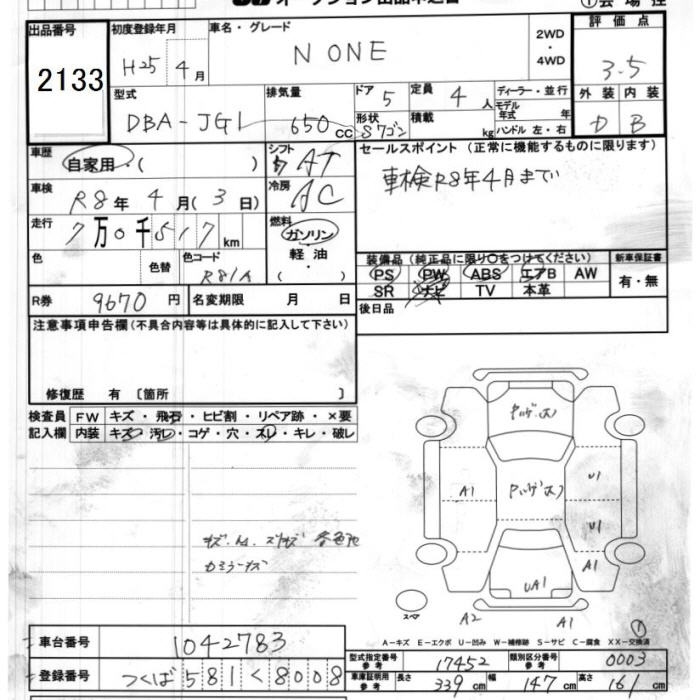 オークション出品申込書
①会場控
出品番号 2133
初度登録年月 H25年 4月
車名・グレード N ONE
2WD・4WD
評価点 3.5
外装 D 内装 B
型式 DBA-JG1
排気量 650 CC
ドア 5
形状 5ワゴン
定員 4 人
積載 kg
ディーラー・並行
モデル年式 年
ハンドル 左・右
車歴 自家用・( )
シフト AT
セールスポイント (正常に機能するものに限ります)
車検R8年4月まで
車検 R8年 4月( 3日)
冷房 AC
走行 7万0千517km
燃料 ガソリン・軽油・( )
色 色替 色コード R81A
装備品(純正品に限り○をつけてください)
新車保証書
PS PW ABS エアB AW
有・無
SR ナビ TV 本革
R券 9670円 名変期限 月 日
後日品
注意事項申告欄(不具合内容等は具体的に記入して下さい)
修復歴 有〔箇所 〕
検査員 FW キズ・飛石・ヒビ割・リペア跡・×要
記入欄 内装 キズ・汚レ・コゲ・穴・スレ・キレ・破レ
A1
U1
U1
A1
UA1
スペア
A2
A1
①
A-キズ E-エクボ U-凹み W-補修跡 S-サビ C-腐食 XX-交換済
車台番号 1042783
型式指定番号 参考 17452 類別区分番号 参考 0003
登録番号 つくば 581 く 8008
車庫証明用 参考 長さ 339cm 幅 147cm 高さ 161cm